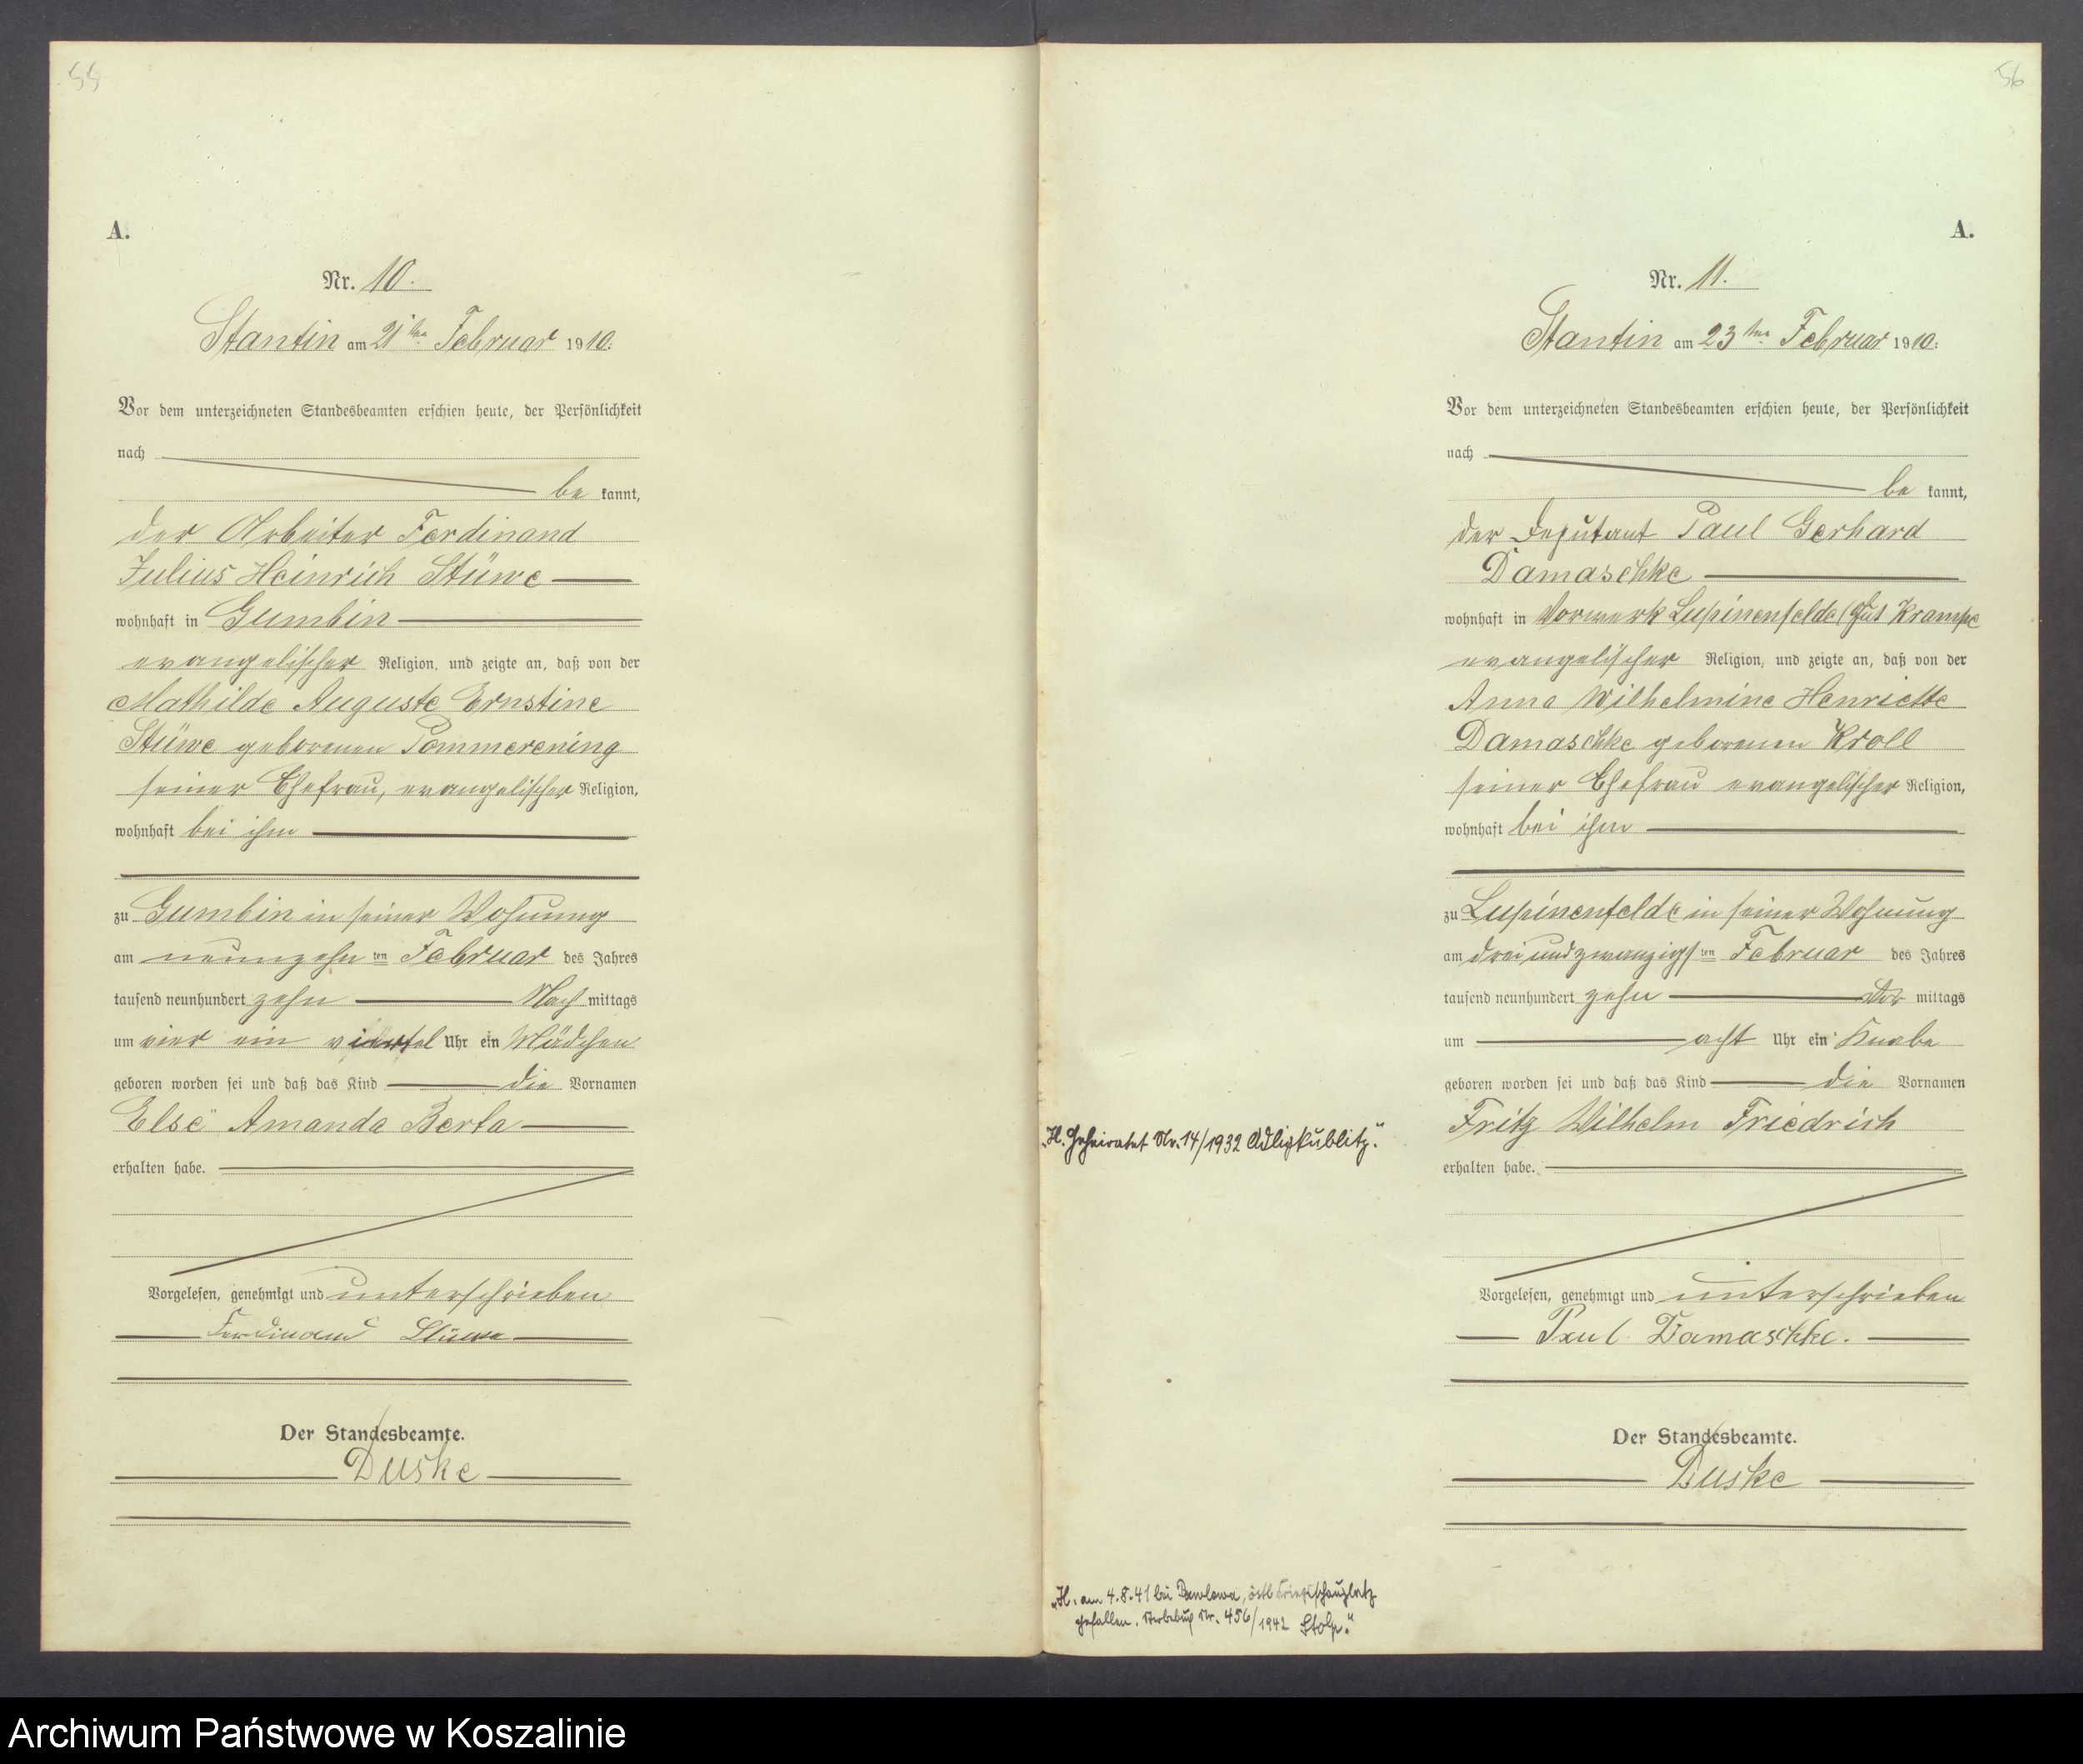 55
A.
Nr. 10.
Stantin am 21ten Februar 1910.
Vor dem unterzeichneten Standesbeamten erschien heute, der Persönlichkeit
nach
be kannt,
der Arbeiter Ferdinand
Julius Heinrich Stüwe
wohnhaft in Gumbin
evangelischer Religion, und zeigte an, daß von der
Mathilde Auguste Ernstine
Stüwe geborenen Pommerening
seiner Ehefrau, evangelischer Religion,
wohnhaft bei ihm
zu Gumbin in seiner Wohnung
am neunzehnten Februar des Jahres
tausend neunhundert zehn Nach mittags
um vier ein viertel Uhr ein Mädchen
geboren worden sei und daß das Kind die Vornamen
Else Amanda Berta
erhalten habe.
Vorgelesen, genehmigt und unterschrieben
Ferdinand Stüwe
Der Standesbeamte.
Duske
56
A.
Nr. 11.
Stantin am 23ten Februar 1910.
Vor dem unterzeichneten Standesbeamten erschien heute, der Persönlichkeit
nach
be kannt,
der Deputant Paul Gerhard
Damaschke
wohnhaft in Vorwerk Lupinenfelde (Gut Krampe
evangelischer Religion, und zeigte an, daß von der
Anna Wilhelmine Henriette
Damaschke geborenen Kroll
seiner Ehefrau evangelischer Religion,
wohnhaft bei ihm
zu Lupinenfelde in seiner Wohnung
am dreiundzwanzigsten Februar des Jahres
tausend neunhundert zehn Vor mittags
um acht Uhr ein Knabe
geboren worden sei und daß das Kind die Vornamen
Fritz Wilhelm Friedrich
erhalten habe.
Vorgelesen, genehmigt und unterschrieben
Paul Damaschke.
Der Standesbeamte.
Duske
„H. Geheiratet Nr. 14/1932 Adligkublitz."
„H. am 4.8.41 bei Pawlowa, östl. Kriegsschauplatz
gefallen. Sterbebuch Nr. 456/1942 Stolp."
Archiwum Państwowe w Koszalinie